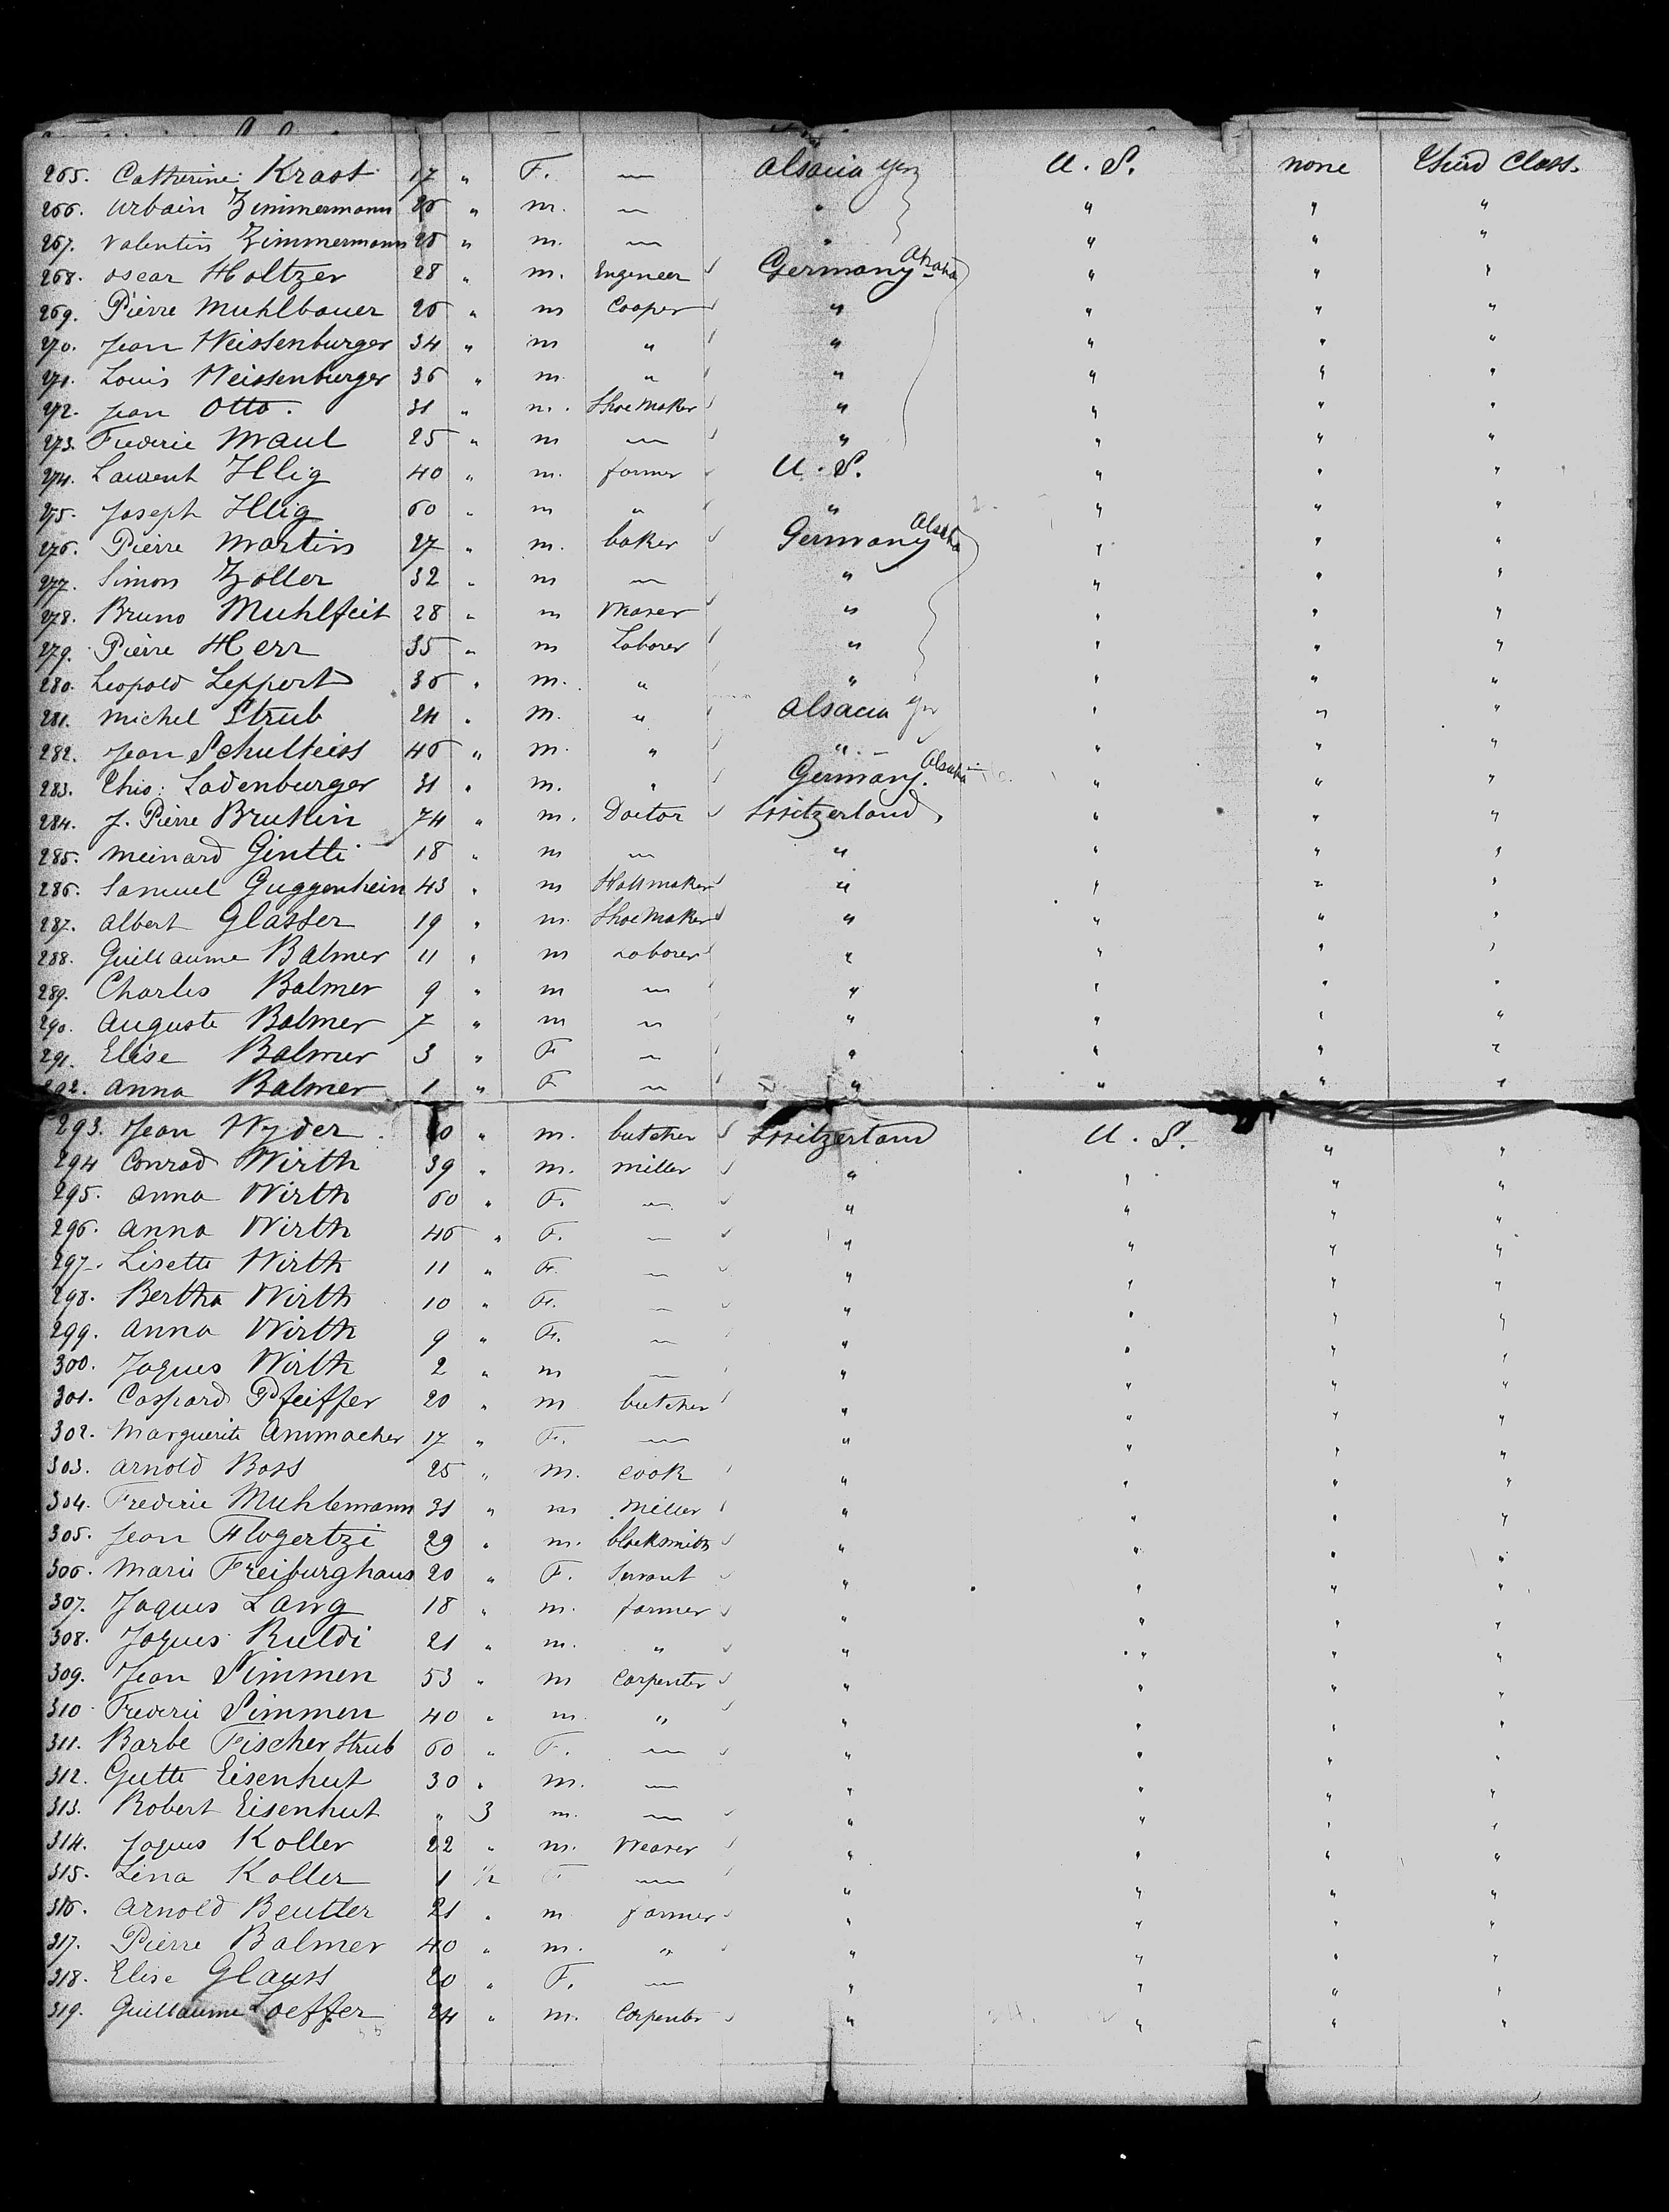 265. Catherine Kraot 17 " F. — Alsacia Ger U. S. none Third Class.
266. Urbain Zimmermann 26 " m. — " " " "
267. Valentin Zimmermann 26 " m. — " " " "
268. Oscar Holtzer 28 " m. Engeneer Germany " " "
269. Pierre Muhlbauer 26 " m Cooper " " " "
270. Jean Weissenburger 34 " m " " " " "
271. Louis Weissenburger 36 " m. " " " " "
272. Jean Otto. 31 " m. Shoe Maker " " " "
273. Frederic Maul 25 " m — " " " "
274. Laurent Illig 40 " m. farmer U. S. " " "
275. Joseph Illig 60 " m " " " " "
276. Pierre Martin 27 " m. baker Germany " " "
277. Simon Zoller 32 " m — " " " "
278. Bruno Muhlfeit 28 " m Weaver " " " "
279. Pierre Herr 35 " m Laborer " " " "
280. Leopold Leppert 36 " m. " " " " "
281. Michel Strub 24 " M. " Alsacia Ger " " "
282. Jean Schulteiss 46 " m. " " " " "
283. Chio: Ladenburger 31 " m. " Germany. " " "
284. J. Pierre Brustlin 74 " m. Doctor Switzerland " " "
285. Meinard Gintti 18 " m — " " " "
286. Samuel Guggenheim 43 " m Hattmaker " " " "
287. Albert Glasser 19 " m. Shoe Maker " " " "
288. Guillaume Balmer 11 " m Laborer " " " "
289. Charles Balmer 9 " m — " " " "
290. Auguste Balmer 7 " m — " " " "
291. Elise Balmer 3 " F — " " " "
292. Anna Balmer 1 " F — " " " "
293. Jean Wyder " m. butcher Switzerland U. S. " "
294 Conrad Wirth 39 " m. miller " " " "
295. Anna Wirth 60 " F. — " " " "
296. Anna Wirth 46 " F. — " " " "
297. Lisette Wirth 11 " F. — " " " "
298. Bertha Wirth 10 " F. — " " " "
299. Anna Wirth 9 " F. — " " " "
300. Jaques Wirth 2 " m — " " " "
301. Caspard Pfeiffer 20 " m butcher " " " "
302. Marguerite Ammacher 17 " F. — " " " "
303. Arnold Boss 25 " m. cook " " " "
304. Frederic Muhlemann 31 " m Miller " " " "
305. Jean Flogertzi 29 " m. blacksmith " " " "
306. Marie Freiburghaus 20 " F. Servant " " " "
307. Jaques Lang 18 " m. farmer " " " "
308. Jaques Rueldi 21 " m. " " " " "
309. Jean Simmen 53 " m Carpenter " " " "
310 Frederic Simmen 40 " m. " " " " "
311. Barbe Fischer Strub 60 " F. — " " " "
312. Gutte Eisenhut 30 " m. — " " " "
313. Robert Eisenhut " 3 m. — " " " "
314. Jaques Koller 22 " m. Weaver " " " "
315. Lina Koller 1 1/2 F — " " " "
316. Arnold Beutler 21 " m farmer " " " "
317. Pierre Balmer 40 " m. " " " " "
318. Elise Glauss 20 " F. — " " " "
319. Guillaume Loeffer 24 " m. Carpenter " " " "